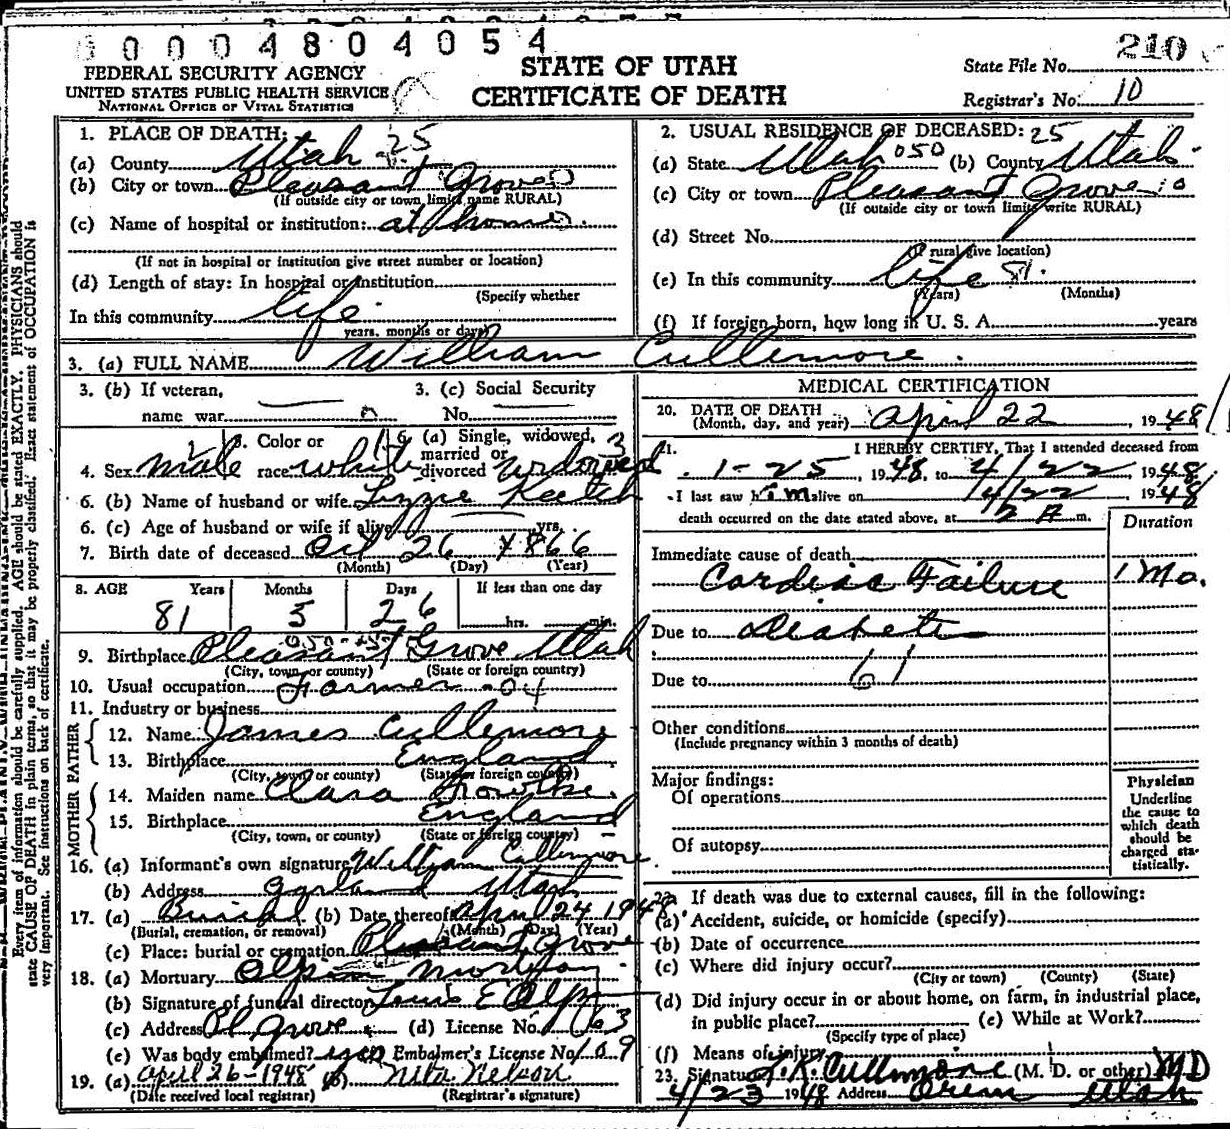 00004804054
210
FEDERAL SECURITY AGENCY
UNITED STATES PUBLIC HEALTH SERVICE
NATIONAL OFFICE OF VITAL STATISTICS
STATE OF UTAH
CERTIFICATE OF DEATH
State File No.
Registrar's No. 10
1. PLACE OF DEATH: 25
(a) County Utah
(b) City or town Pleasant Grove
(If outside city or town limits name RURAL)
(c) Name of hospital or institution: at home
(If not in hospital or institution give street number or location)
(d) Length of stay: In hospital or institution
(Specify whether
In this community life
years, months or days)
2. USUAL RESIDENCE OF DECEASED: 25
(a) State Utah 050 (b) County Utah
(c) City or town Pleasant Grove 10
(If outside city or town limits write RURAL)
(d) Street No.
(If rural give location)
(e) In this community life 81
(Years) (Months)
(f) If foreign born, how long in U. S. A. years
3. (a) FULL NAME William Cullimore
3. (b) If veteran,
name war
3. (c) Social Security
No.
4. Sex male
5. Color or
race white
6. (a) Single, widowed, married or
divorced widowed 3
6. (b) Name of husband or wife Lizzie Keetch
6. (c) Age of husband or wife if alive yrs.
7. Birth date of deceased Oct 26 1866
(Month) (Day) (Year)
8. AGE Years Months Days If less than one day
81 5 26 hrs. min.
050-25
9. Birthplace Pleasant Grove Utah
(City, town, or county) (State or foreign country)
10. Usual occupation Farmer 04
11. Industry or business
FATHER
12. Name James Cullemore
13. Birthplace England
(City, town or county) (State or foreign country)
MOTHER
14. Maiden name Clara
15. Birthplace England
(City, town, or county) (State or foreign country)
16. (a) Informant's own signature William Cullimore
(b) Address Garland Utah
17. (a) Burial (b) Date thereof April 24 1948
(Burial, cremation, or removal) (Month) (Day) (Year)
(c) Place: burial or cremation Pleasant Grove
18. (a) Mortuary
(b) Signature of funeral director
(c) Address Pl Grove (d) License No. 163
(e) Was body embalmed? yes Embalmer's License No. 109
19. (a) April 26-1948 (b) Nita Nelson
(Date received local registrar) (Registrar's signature)
MEDICAL CERTIFICATION
20. DATE OF DEATH
(Month, day, and year) April 22, 1948
21. I HEREBY CERTIFY, That I attended deceased from
1-25, 1948, to 4/22 1948
I last saw him alive on 4/22, 1948
death occurred on the date stated above, at 2 A m.
Duration
Immediate cause of death
Cardiac Failure 1 Mo.
Due to Diabetes
Due to 61
Other conditions
(Include pregnancy within 3 months of death)
Major findings:
Of operations
Of autopsy
Physician
Underline
the cause to
which death
should be
charged sta-
tistically.
22. If death was due to external causes, fill in the following:
(a) Accident, suicide, or homicide (specify)
(b) Date of occurrence
(c) Where did injury occur?
(City or town) (County) (State)
(d) Did injury occur in or about home, on farm, in industrial place,
in public place? (e) While at Work?
(Specify type of place)
(f) Means of injury
23. Signature Cullimore (M. D. or other) MD
4/23 1948 Address Orem Utah
Every item of information should be carefully supplied. AGE should be stated EXACTLY. PHYSICIANS should
state CAUSE OF DEATH in plain terms, so that it may be properly classified. Exact statement of OCCUPATION is
very important. See instructions on back of certificate.